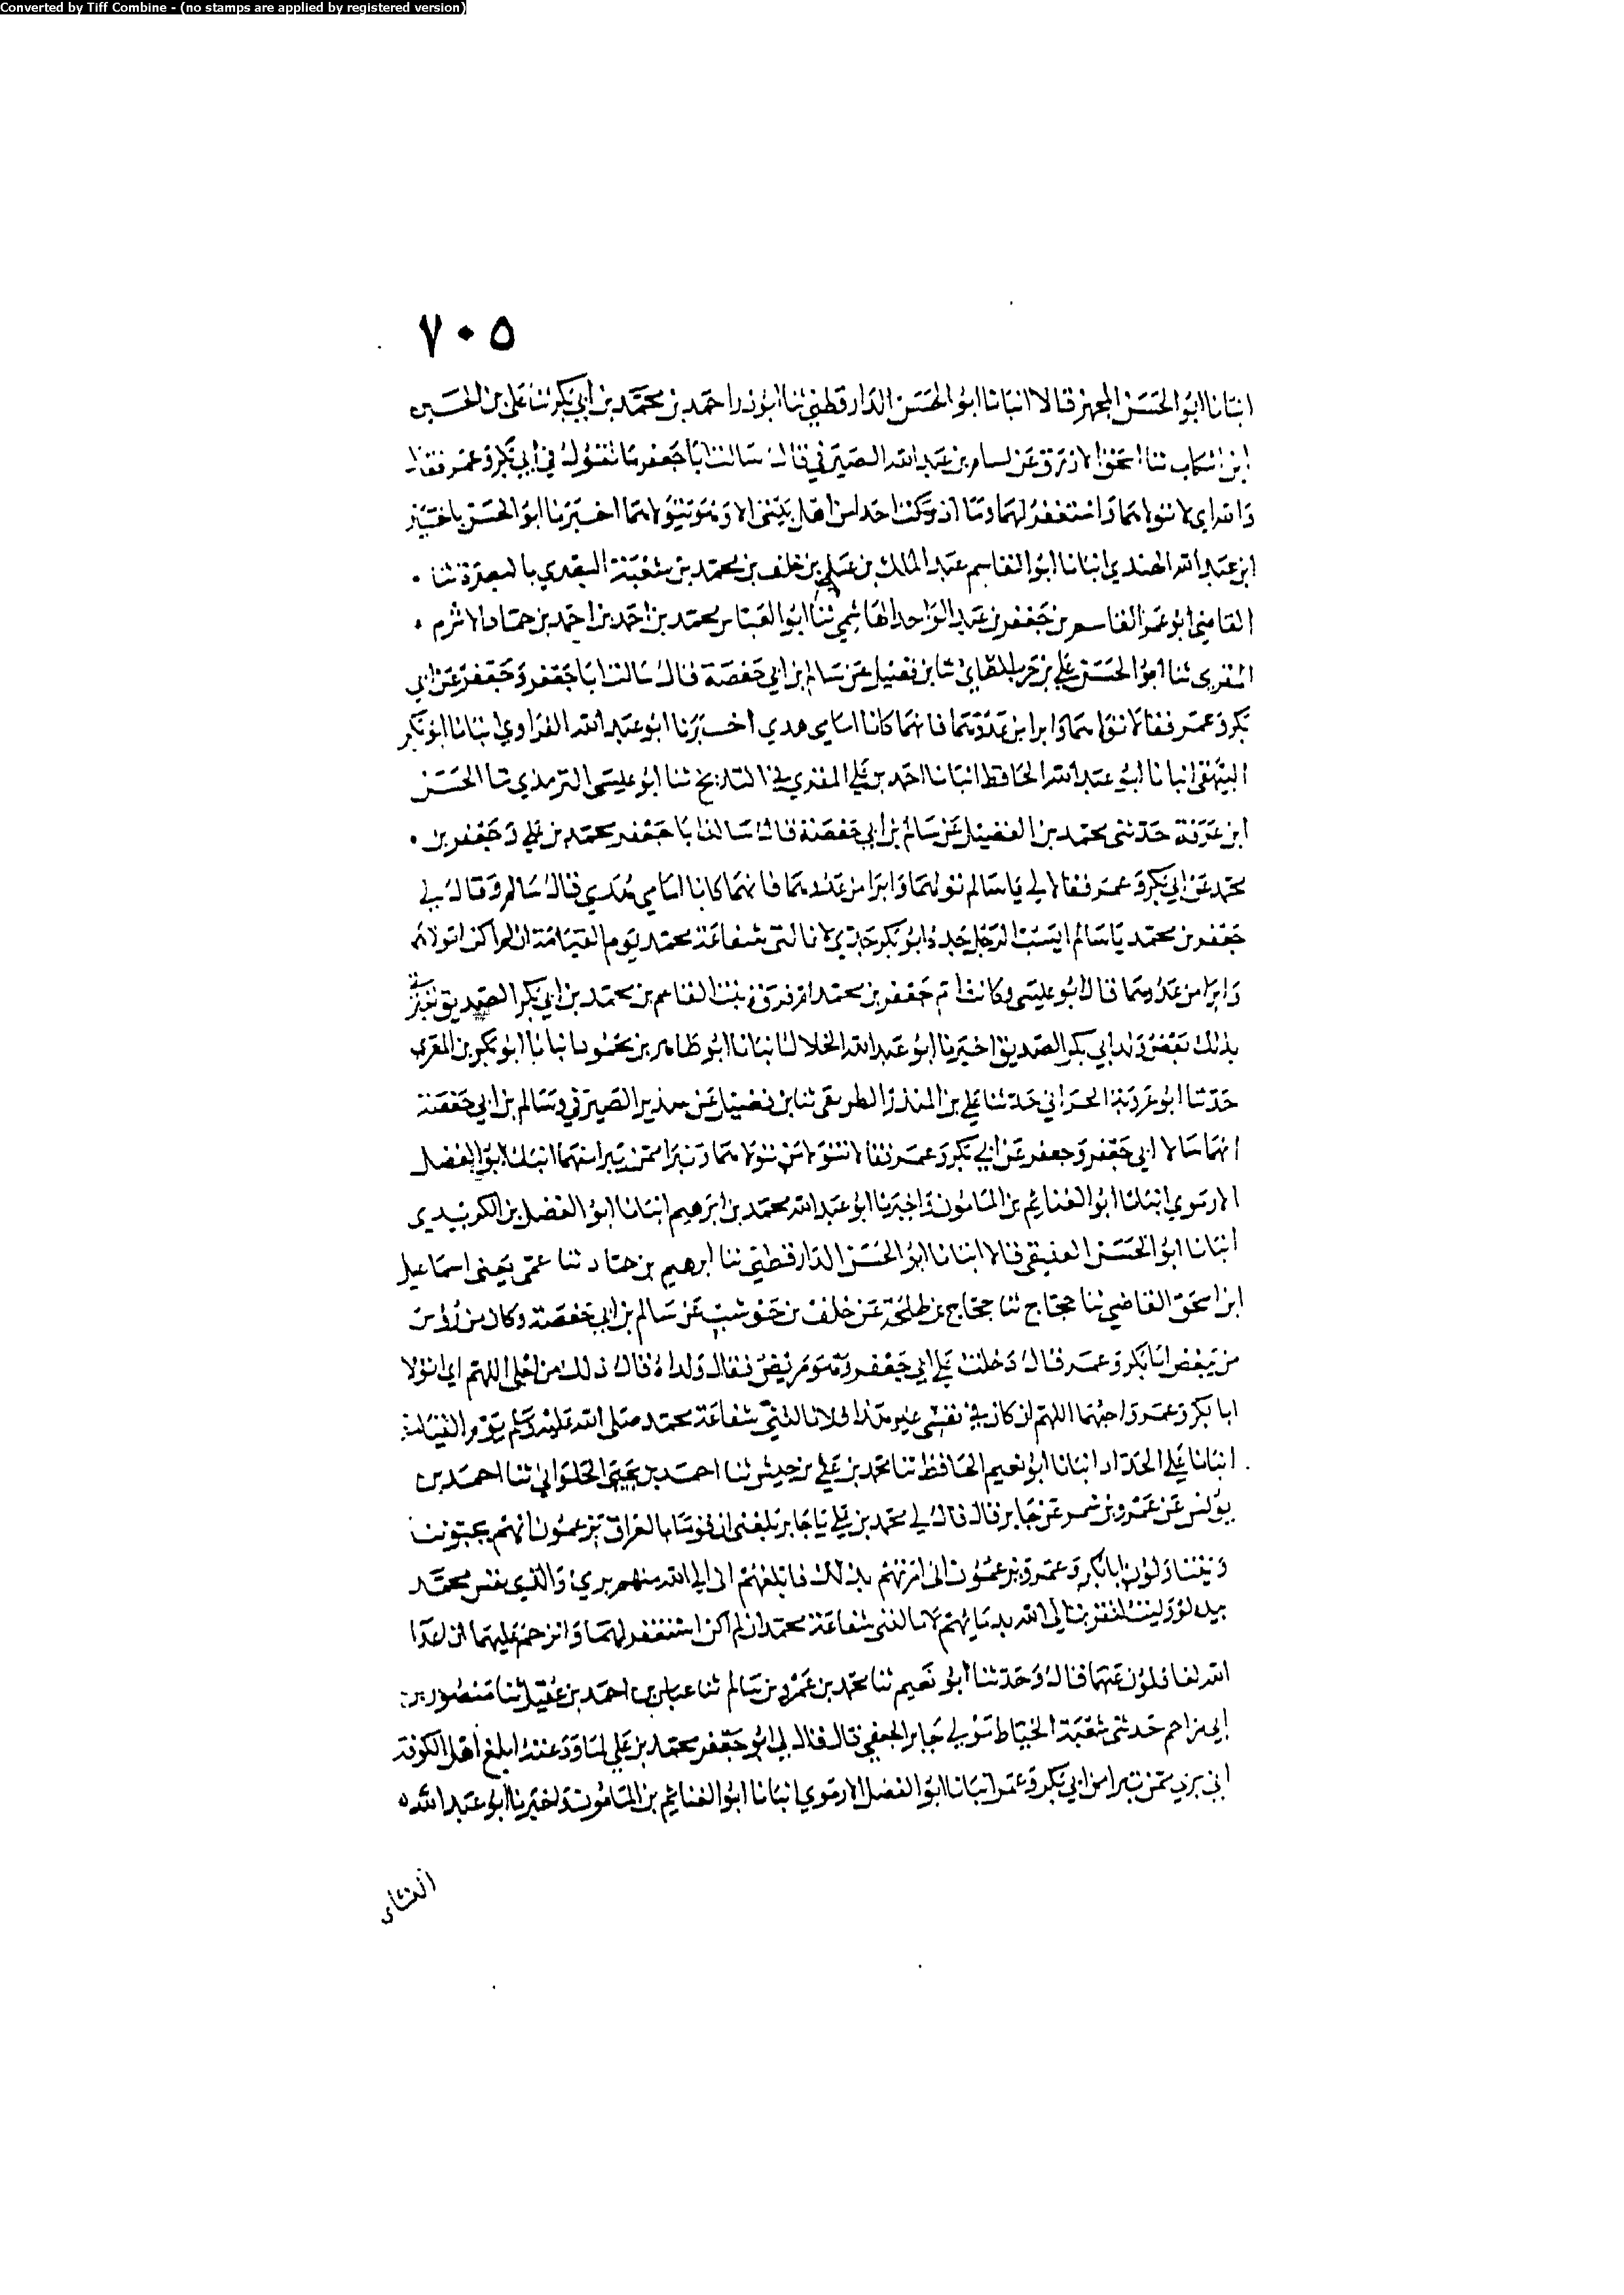 Converted by Tiff Combine - (no stamps are applied by registered version)
٧٠٥
انبانا ابو الحسن المجهز قالا انبانا ابو الحسن الدارقطني ثنا ابوذر احمد بن محمد بن ابي بكر ثنا علي بن الحسين
ابن اشكاب ثنا اسحق الازرق عن بسام بن عبد الله الصيرفي قال سالت ابا جعفر ما تقول في ابي بكر وعمر فقال
والله اني لاتولاهما واستغفر لهما وما ادركت احدا من اهل بيتي الا وهو يتولاهما اخبرنا ابو الحسن باختيار
ابن عبد الله الهندي انبانا ابو القاسم عبد الملك بن علي بن خلف بن محمد بن شعبة البصري بالبصرة ثنا
القاضي ابو عمر القاسم بن جعفر بن عبد الواحد الهاشمي ثنا ابو العباس محمد بن احمد بن احمد بن حماد الاثرم
المقري ثنا ابو الحسن علي بن حرب الطائي ثنا ابن فضيل عن سالم بن ابي حفصة قال سالت ابا جعفر وجعفر عن ابي
بكر وعمر فقالا تولهما وابرا من عدوهما فانهما كانا امامي هدي اخبرنا ابو عبد الله الفراوي انبانا ابو بكر
البيهقي انبانا ابو عبد الله الحافظ انبانا احمد بن علي المقري في التاريخ ثنا ابو عيسى الترمذي ثنا الحسن
ابن عرفة حدثني محمد بن الفضيل عن سالم بن ابي حفصة قال سالت ابا جعفر محمد بن علي وجعفر بن
محمد عن ابي بكر وعمر فقالا لي يا سالم تولهما وابرا من عدوهما فانهما كانا امامي هدي قال سالم وقال لي
جعفر بن محمد يا سالم ايسب الرجل جده ابو بكر جدي لا نالتني شفاعة محمد يوم القيامة ان لم اكن اتولاهما
وابرا من عدوهما قال ابو عيسى وكانت ام جعفر بن محمد ام فروة بنت القاسم بن محمد بن ابي بكر الصديق
بذلك بعض ولد ابي بكر الصديق اخبرنا ابو عبد الله الخلال انبانا ابو طاهر بن محمود انبانا ابو بكر بن المقري
حدثنا ابو عروبة الحراني حدثنا علي بن المنذر الطريقي ثنا ابن فضيل عن سدير الصيرفي وسالم بن ابي حفصة
انهما سالا ابي جعفر وجعفر عن ابي بكر وعمر فقالا نتولا من تولاهما ونبرا ممن يبرا منهما انبانا ابو الفضل
الارموي انبانا ابو الغنائم بن المامون واخبرنا ابو عبد الله محمد بن ابرهيم انبانا ابو الفضل بن الكريدي
انبانا ابو الحسن العتيقي قالا انبانا ابو الحسن الدارقطني ثنا ابرهيم بن حماد ثنا عمي يعني اسماعيل
ابن اسحق القاضي ثنا حجاج ثنا حجاج عن طلحة عن خلف بن حوشب عن سالم بن ابي حفصة وكان من رؤس
من يبغض ابا بكر وعمر قال دخلت علي ابي جعفر وهو مريض فقال ذلك من اجلي اللهم اني اتولا
ابا بكر وعمر واحبهما اللهم ان كان في نفسي غير هذا فلا نالتني شفاعة محمد صلى الله عليه وسلم يوم القيامة
انبانا علي الحداد انبانا ابو نعيم الحافظ ثنا محمد بن علي بن حبيش ثنا احمد بن يحيى الحلواني ثنا احمد بن
يونس عن عمرو بن شمر عن جابر قال قال لي محمد بن علي يا جابر بلغني ان قوما بالعراق يزعمون انهم يحبونا
ويتناولون ابا بكر وعمر ويزعمون اني امرتهم بذلك فابلغهم اني الي الله منهم بريء والذي نفس محمد
بيده لو وليت لتقربت الي الله بدمايهم لا نالتني شفاعة محمد ان لم اكن استغفر لهما واترحم عليهما ان اعدا
الله لغافلون عنهما قال وحدثنا ابو نعيم ثنا محمد بن عمرو بن سالم ثنا عباس بن احمد بن عقيل ثنا منصور بن
ابي مزاحم حدثني شعبة الخياط مولي جابر الجعفي قال قال لي ابو جعفر محمد بن علي لما ودعته ابلغ اهل الكوفة
اني بري ممن تبرا من ابي بكر وعمر انبانا ابو الفضل الارموي انبانا ابو الغنائم بن المامون واخبرنا ابو عبد الله